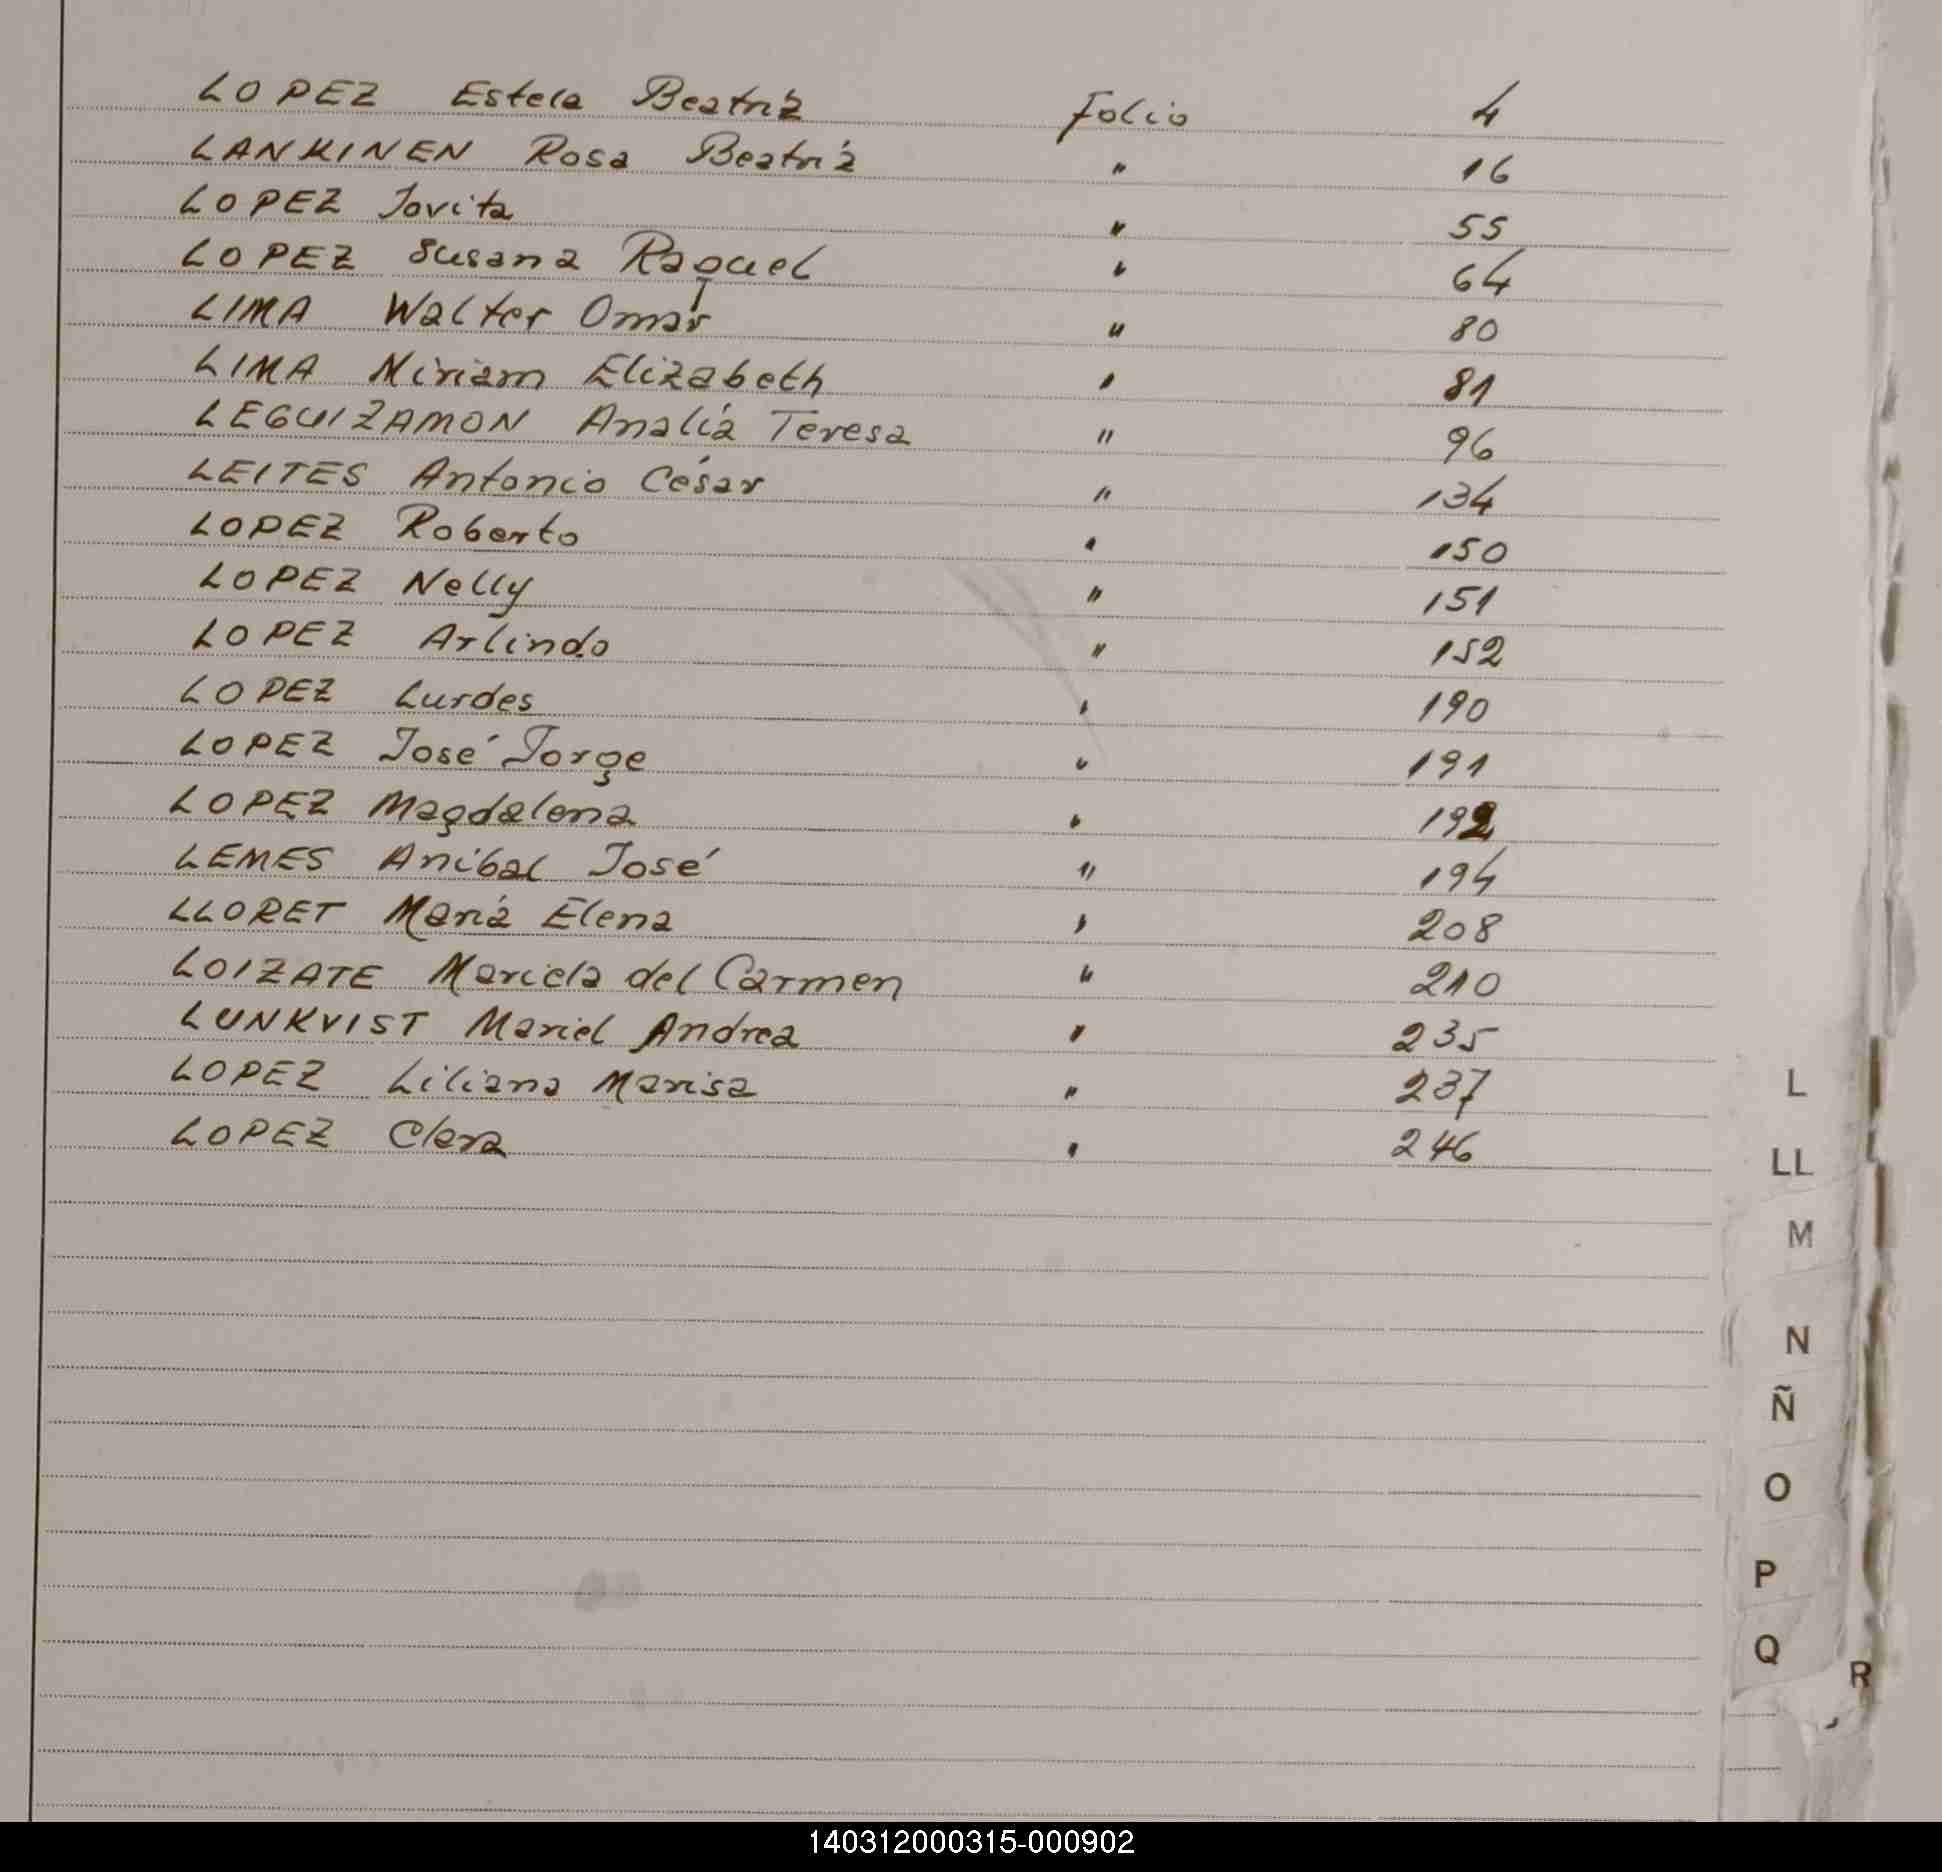 LOPEZ Estela Beatriz Folio 4
LANKINEN Rosa Beatriz " 16
LOPEZ Jovita " 55
LOPEZ Susana Raquel " 64
LIMA Walter Omar " 80
LIMA Miriam Elizabeth " 81
LEGUIZAMON Analía Teresa " 96
LEITES Antonio César " 134
LOPEZ Roberto " 150
LOPEZ Nelly " 151
LOPEZ Arlindo " 152
LOPEZ Lurdes " 190
LOPEZ José Jorge " 191
LOPEZ Magdalena " 192
LEMES Anibal José " 194
LLORET María Elena " 208
LOIZATE Mariela del Carmen " 210
LUNKVIST Mariel Andrea " 235
LOPEZ Liliana Marisa " 237
LOPEZ Clara " 246
L
LL
M
N
Ñ
O
P
Q
R
140312000315-000902